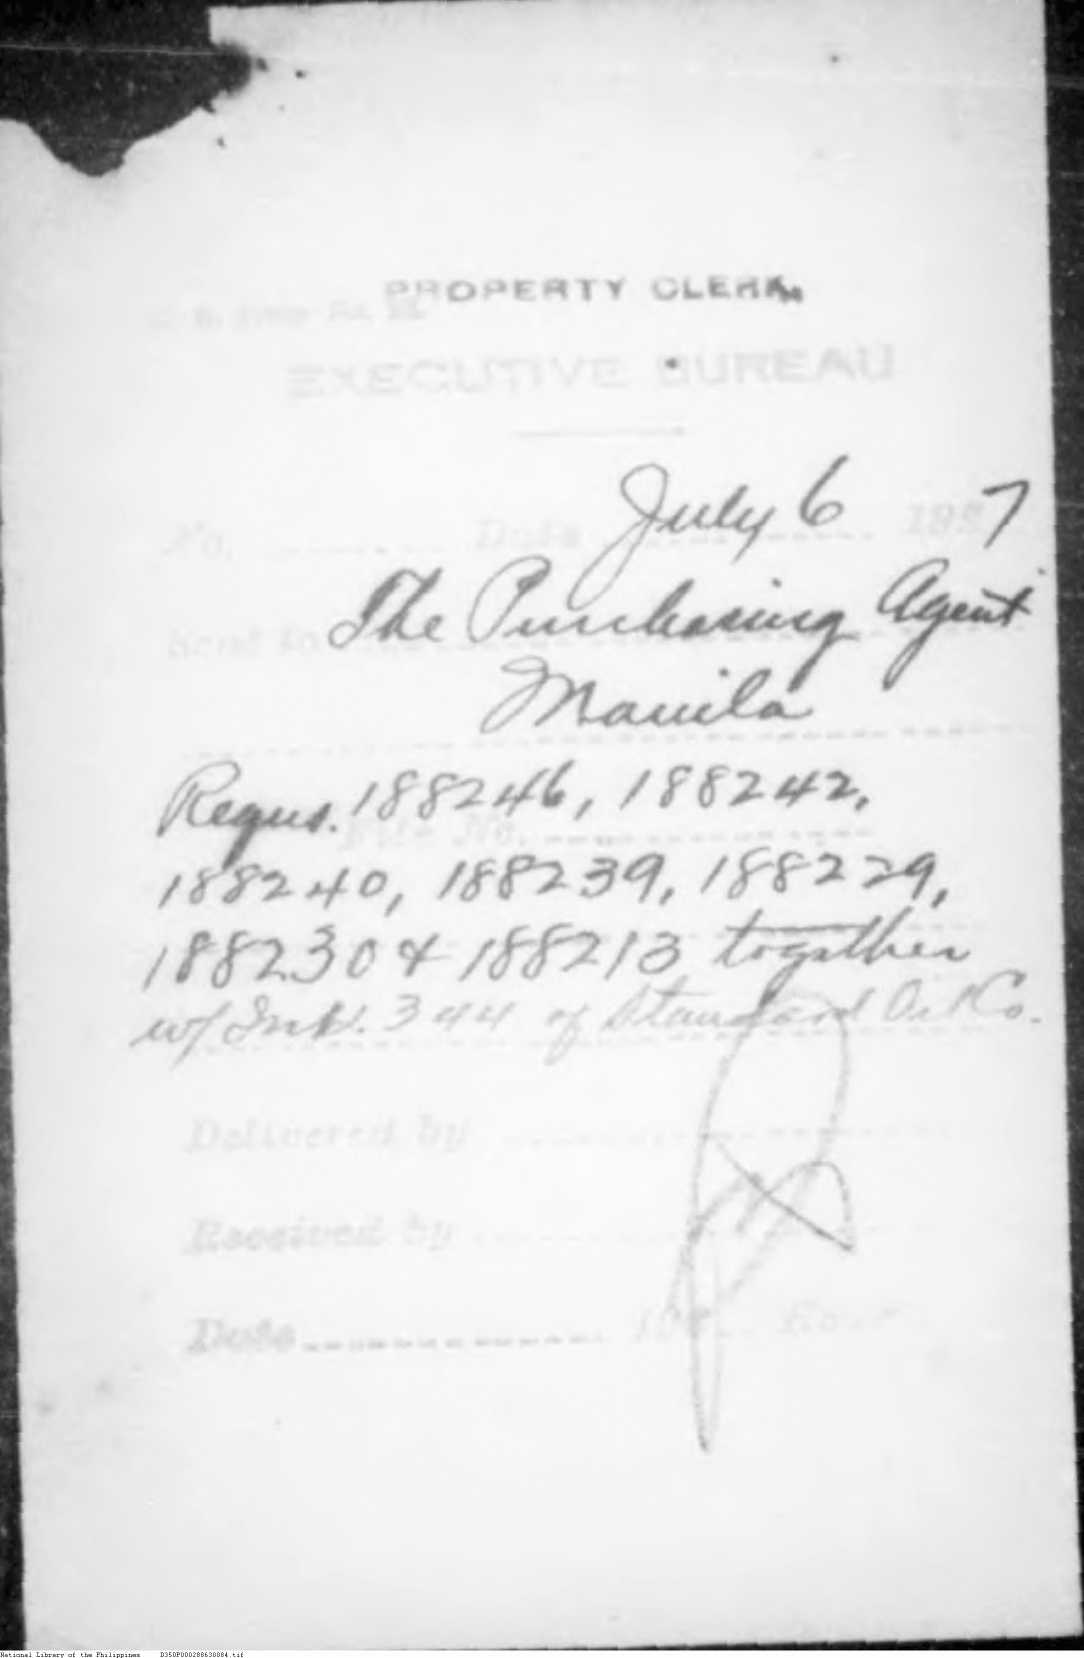 PROPERTY CLERK
EXECUTIVE BUREAU
No. Date July 6 192 7
Sent to The Purchasing Agent
Manila
Requs. 188246, 188242,
File No.
188240, 188239, 188229,
188230 & 188213 together
w/ 344 of Standard Oil Co.
Delivered by
Received by
Date 19
National Library of the Philippines D350P000288630084.tif